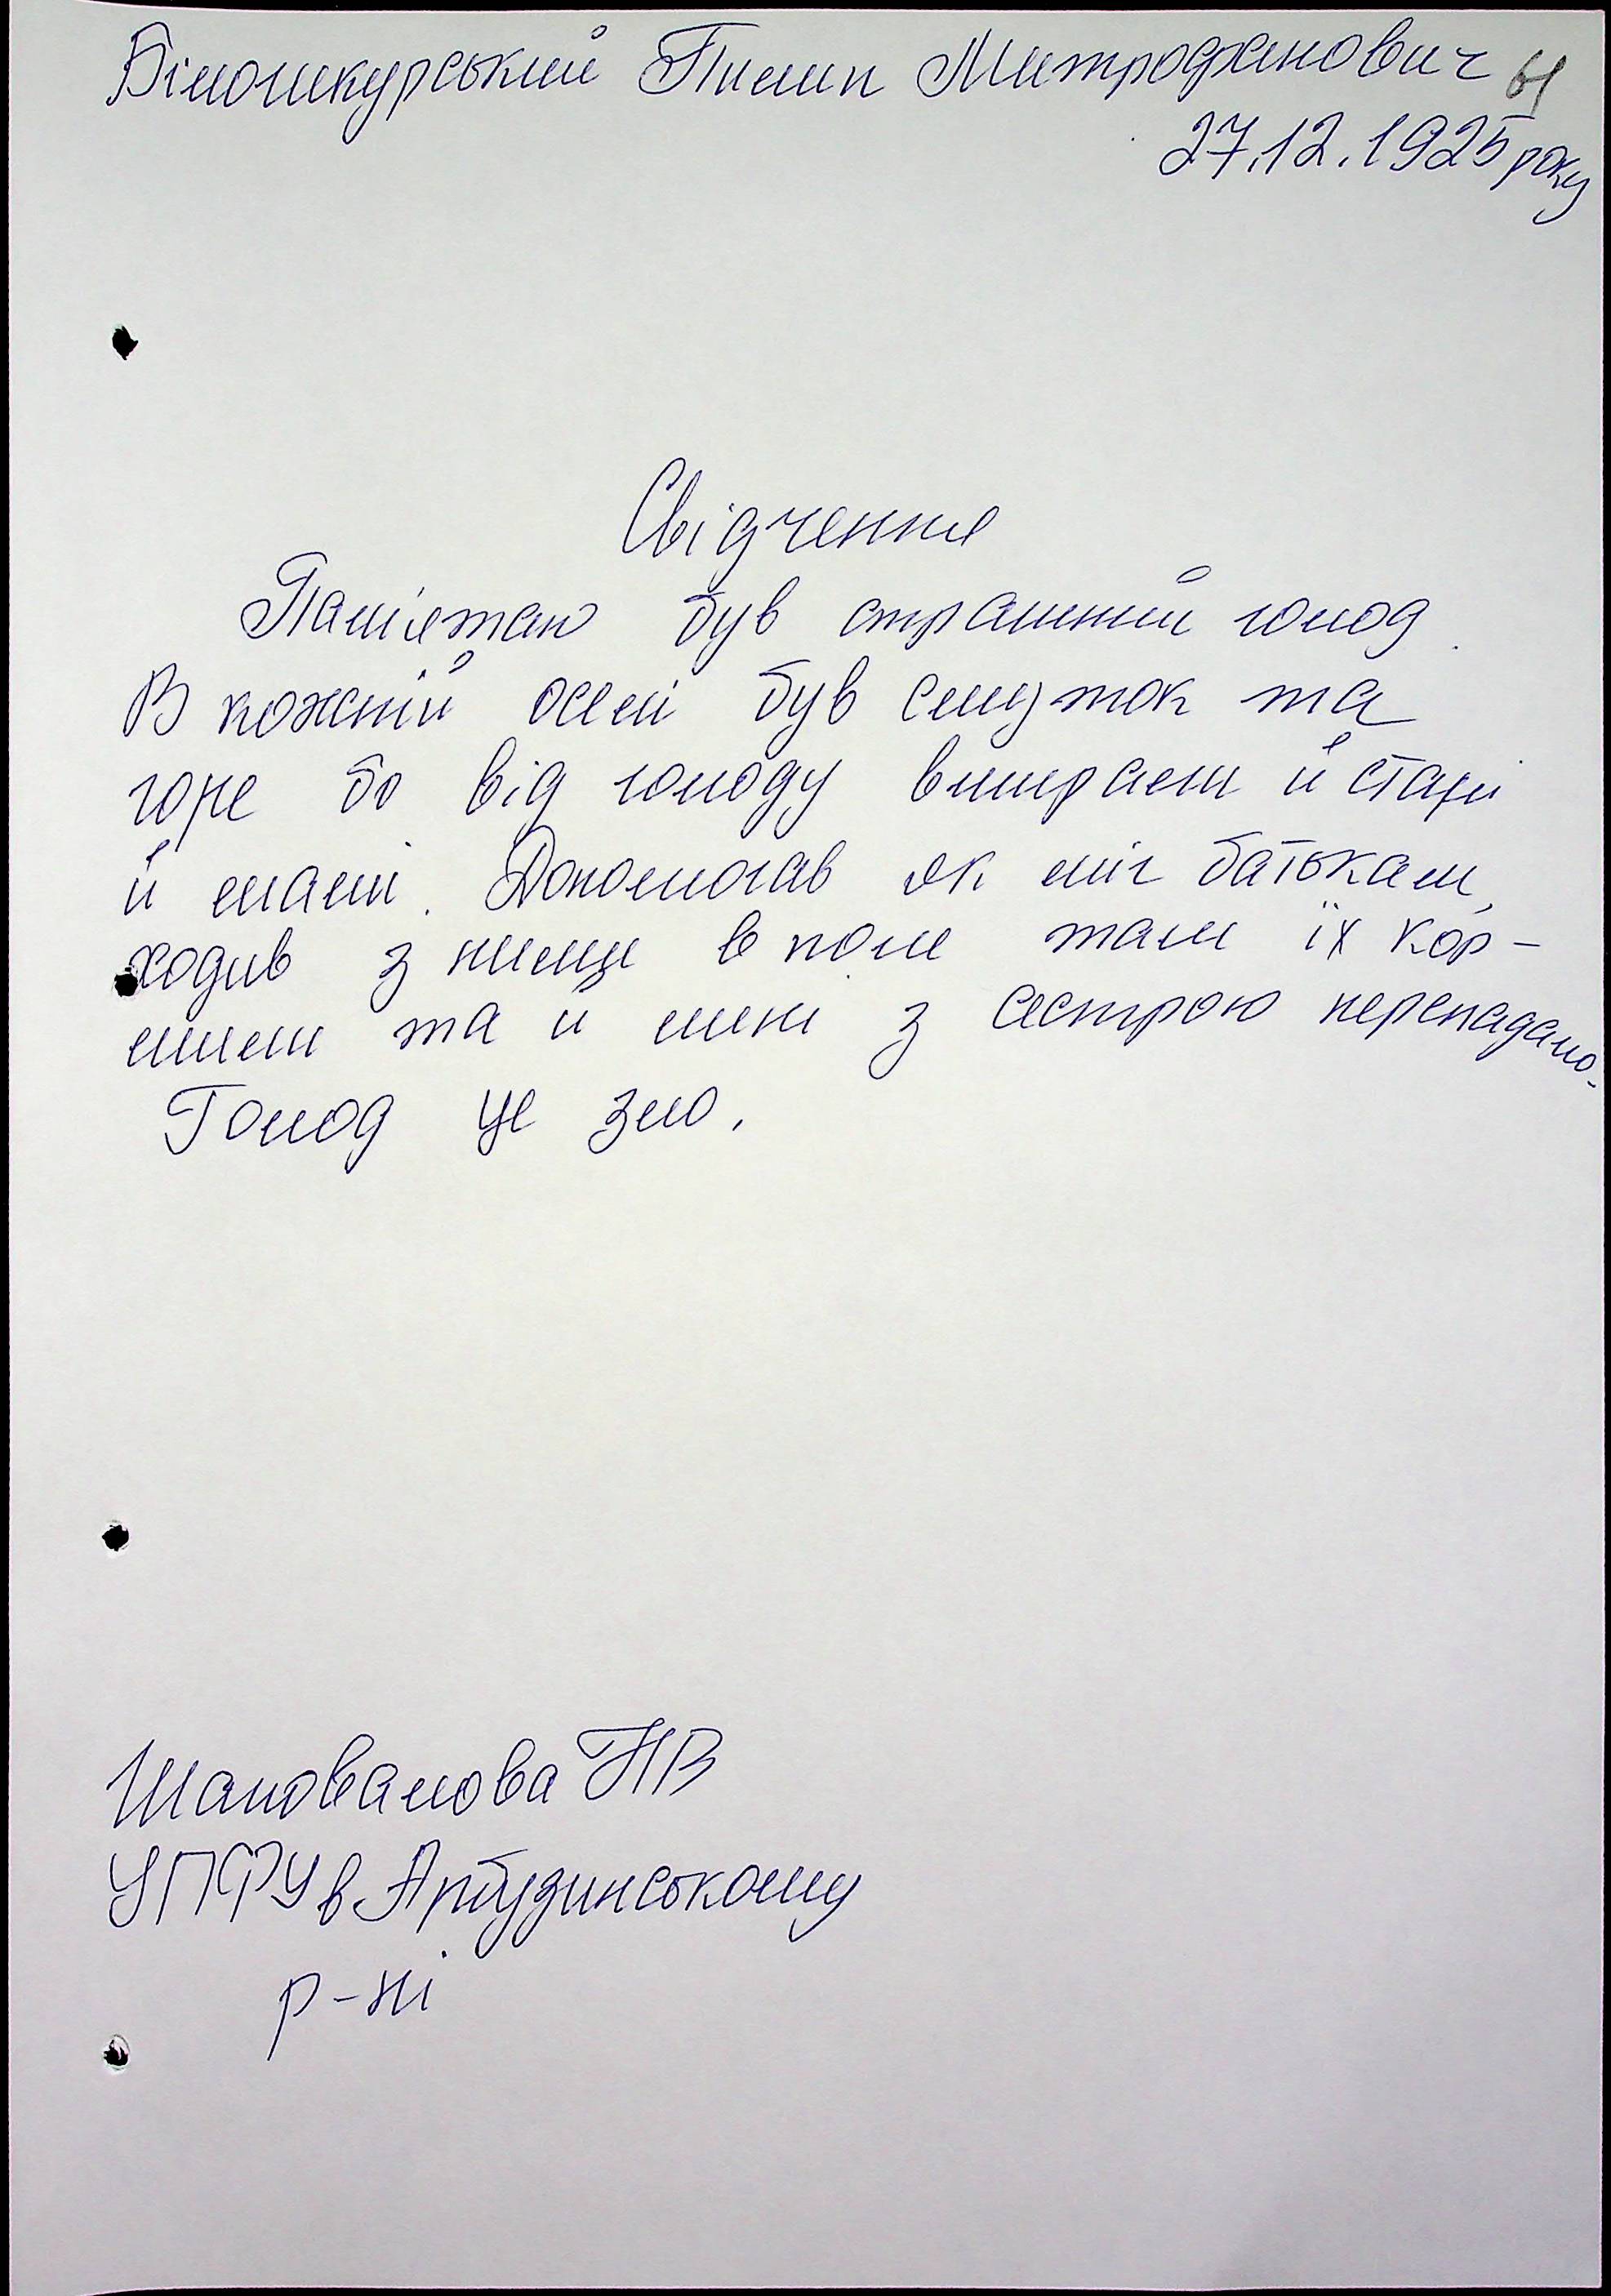 Білошкурський Пилип Митрофанович 61
27.12.1925 року
Свідчення
Памiятаю був страшний голод.
В кожній оселі був смуток та
горе бо від голоду вмирали й старі
й малі. Допомагав як міг батькам,
ходив з ними в поле там їх кор-
мили та й мені з сестрою перепадало.
Голод це зло.
Шаповалова НВ
УПФУ в Арбузинському
р-ні